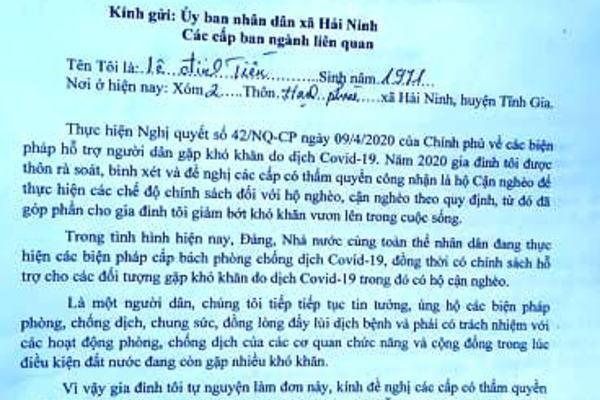 Kính gửi: Ủy ban nhân dân xã Hải Ninh
Các cấp ban ngành liên quan
Tên Tôi là: Lê đình Tiên Sinh năm 1971
Nơi ở hiện nay: Xóm 2 Thôn xã Hải Ninh, huyện Tĩnh Gia.
Thực hiện Nghị quyết số 42/NQ-CP ngày 09/4/2020 của Chính phủ về các biện
pháp hỗ trợ người dân gặp khó khăn do dịch Covid-19. Năm 2020 gia đình tôi được
thôn rà soát, bình xét và đề nghị các cấp có thẩm quyền công nhận là hộ Cận nghèo để
thực hiện các chế độ chính sách đối với hộ nghèo, cận nghèo theo quy định, từ đó đã
góp phần cho gia đình tôi giảm bớt khó khăn vươn lên trong cuộc sống.
Trong tình hình hiện nay, Đảng, Nhà nước cùng toàn thể nhân dân đang thực
hiện các biện pháp cấp bách phòng chống dịch Covid-19, đồng thời có chính sách hỗ
trợ cho các đối tượng gặp khó khăn do dịch Covid-19 trong đó có hộ cận nghèo.
Là một người dân, chúng tôi tiếp tiếp tục tin tưởng, ủng hộ các biện pháp
phòng, chống dịch, chung sức, đồng lòng đẩy lùi dịch bệnh và phải có trách nhiệm với
các hoạt động phòng, chống dịch của các cơ quan chức năng và cộng đồng trong lúc
điều kiện đất nước đang còn gặp nhiều khó khăn.
Vì vậy gia đình tôi tự nguyện làm đơn này, kính đề nghị các cấp có thẩm quyền